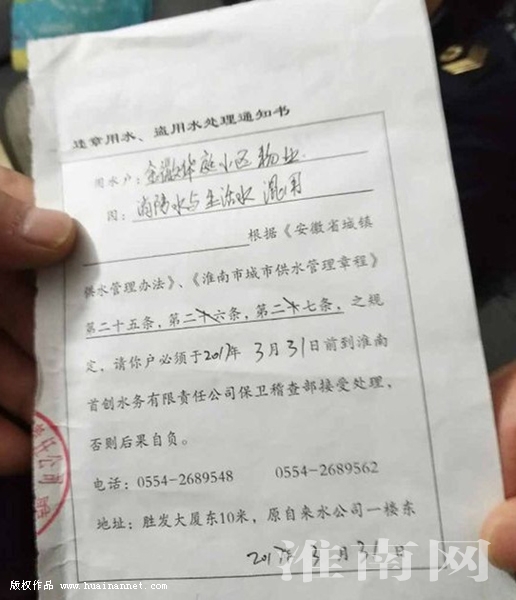 违章用水、盗用水处理通知书
用水户：金徽华庭小区物业
因：消防水与生活水混用
根据《安徽省城镇
供水管理办法》、《淮南市城市供水管理章程》
第二十五条，第二十六条，第二十七条，之规
定，请你户必须于2017年3月31日前到淮南
首创水务有限责任公司保卫稽查部接受处理，
否则后果自负。
电话：0554-2689548 0554-2689562
地址：胜发大厦东10米，原自来水公司一楼东
2017年3月31日
淮南网
版权作品 www.huainannet.com